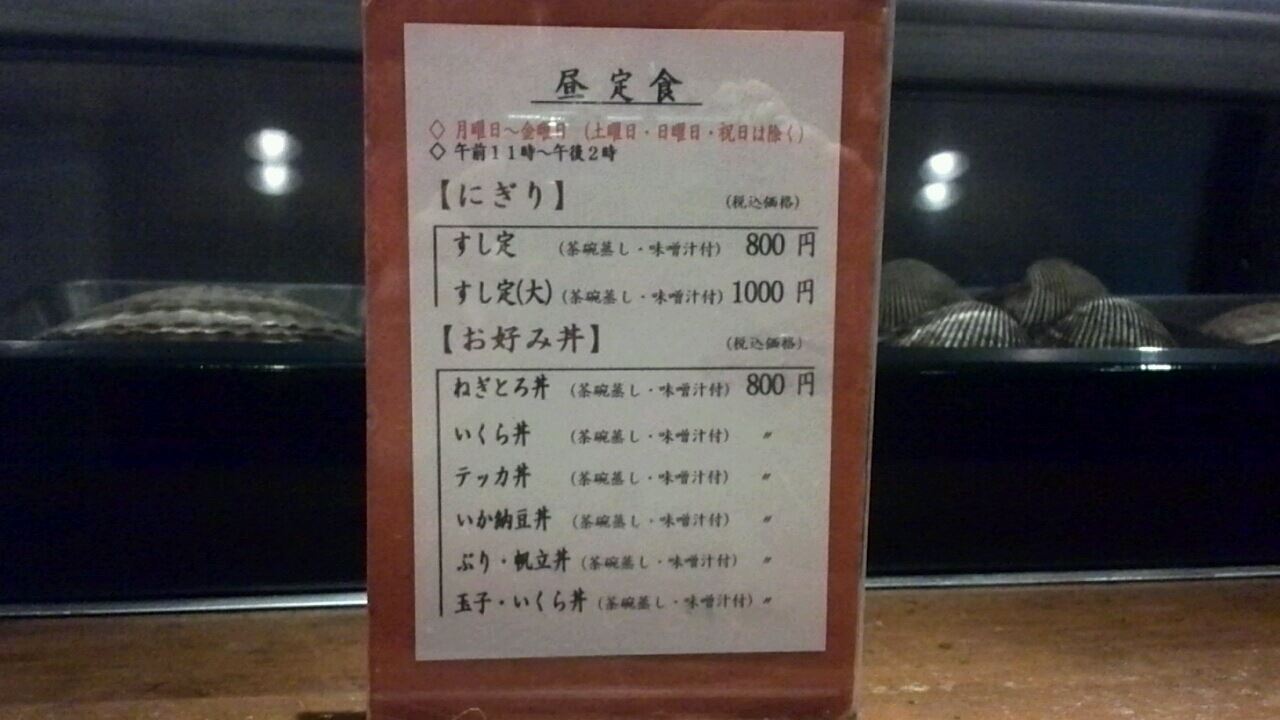 昼定食
◇ 月曜日～金曜日 (土曜日・日曜日・祝日は除く)
◇ 午前11時～午後2時
【にぎり】 (税込価格)
すし定 (茶碗蒸し・味噌汁付) 800 円
すし定(大) (茶碗蒸し・味噌汁付) 1000 円
【お好み丼】 (税込価格)
ねぎとろ丼 (茶碗蒸し・味噌汁付) 800 円
いくら丼 (茶碗蒸し・味噌汁付) 〃
テッカ丼 (茶碗蒸し・味噌汁付) 〃
いか納豆丼 (茶碗蒸し・味噌汁付) 〃
ぶり・帆立丼 (茶碗蒸し・味噌汁付) 〃
玉子・いくら丼 (茶碗蒸し・味噌汁付) 〃